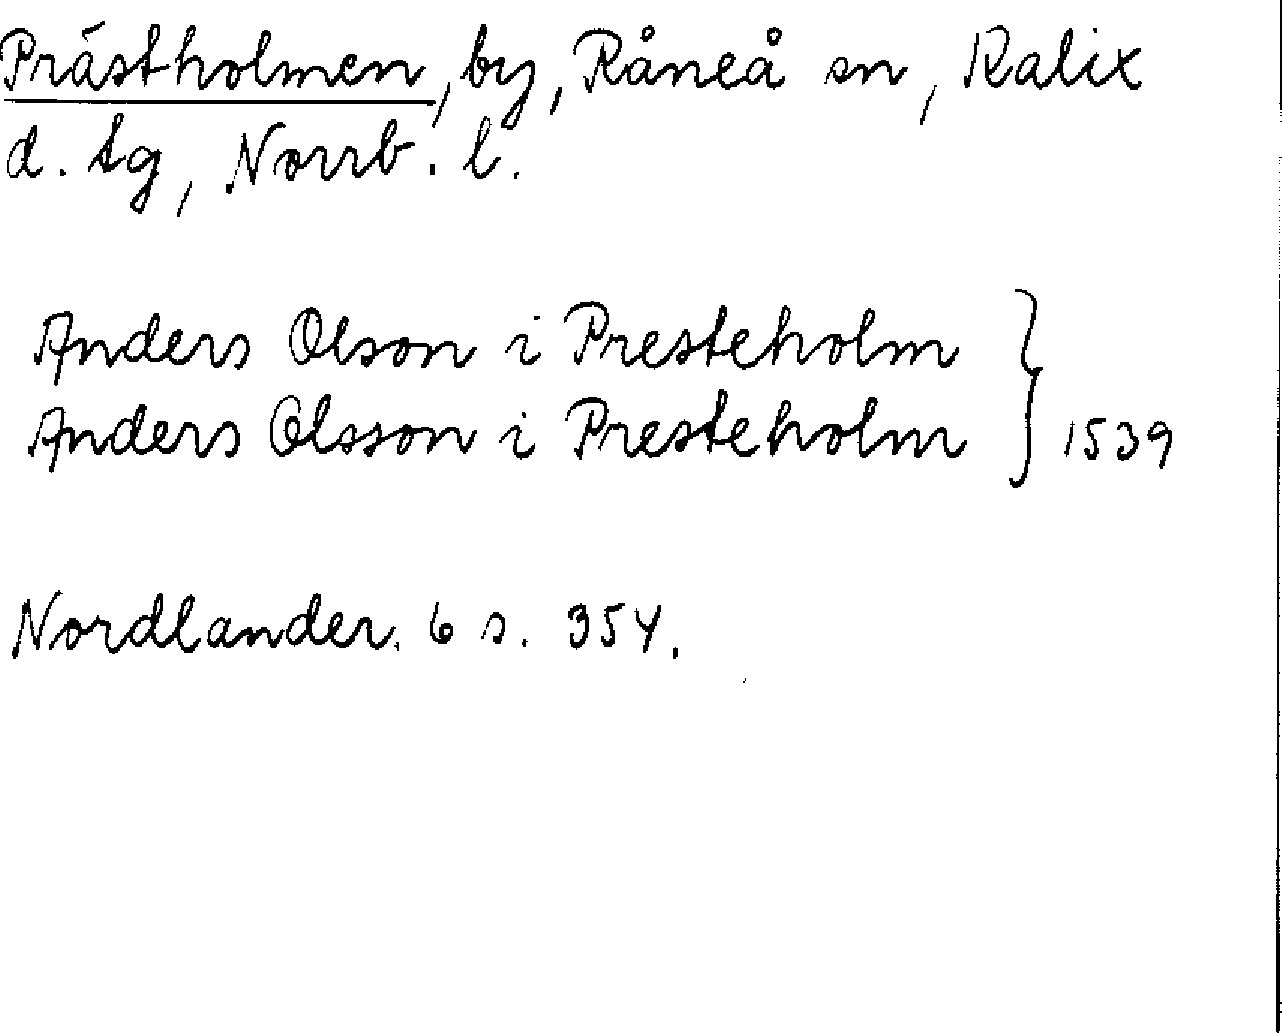 Prästholmen, by, Råneå sn, Kalix
d. tg, Norrb. l.
Anders Olson i Presteholm
Anders Olsson i Presteholm } 1539
Nordlander. 6 s. 354.